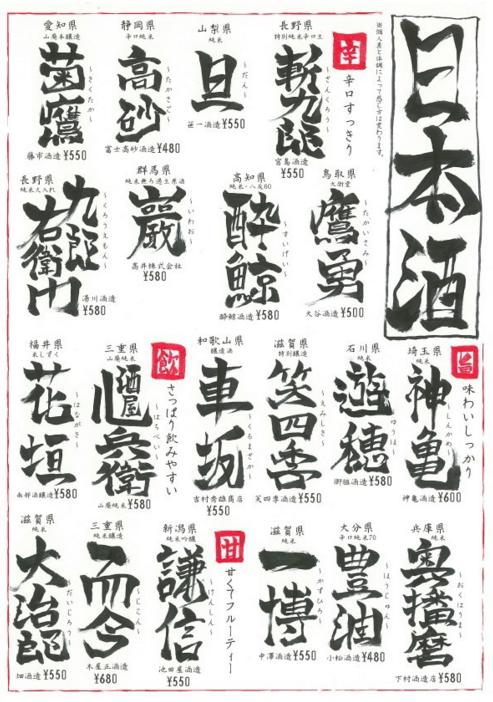 日本酒
※個人差と体調によって感じ方は変わります。
辛
辛口すっきり
長野県
特別純米辛口生
斬九郎
～ざんくろう～
宮島酒造
¥550
山梨県
純米
旦
～だん～
笹一酒造¥550
静岡県
辛口純米
高砂
～たかさご～
富士高砂酒造¥480
愛知県
山廃本醸造
菊鷹
～きくたか～
藤市酒造¥550
鳥取県
鷹勇
～たかいさみ～
大谷酒造¥500
高知県
純米・八反60
酔鯨
～すいげい～
酔鯨酒造¥580
群馬県
純米無ろ過生原酒
巖
～いわお～
高井株式会社
¥580
長野県
純米火入れ
九郎右衛門
～くろうえもん～
湯川酒造
¥580
旨
味わいしっかり
埼玉県
純米
神亀
～しんかめ～
神亀酒造¥600
石川県
山廃純米
遊穂
～ゆうほ～
御祖酒造¥580
滋賀県
特別純米
笑四季
～えみしき～
笑四季酒造¥550
和歌山県
醸造酒
車坂
～くるまざか～
吉村秀雄商店
¥550
飲
さっぱり飲みやすい
三重県
山廃純米
酒屋八兵衛
～はちべい～
山廃純米¥580
福井県
米しずく
花垣
～はながき～
南部酒造¥580
兵庫県
純米
奥播磨
～おくはりま～
下村酒造店¥580
大分県
辛口純米70
豊潤
～ほうじゅん～
小松酒造¥480
滋賀県
純米
一博
～かずひろ～
中澤酒造¥550
甘
甘くてフルーティー
新潟県
純米吟醸
謙信
～けんしん～
池田屋酒造
¥550
三重県
純米醸造
而今
～じこん～
木屋正酒造
¥680
滋賀県
純米
大治郎
～だいじろう～
畑酒造¥550